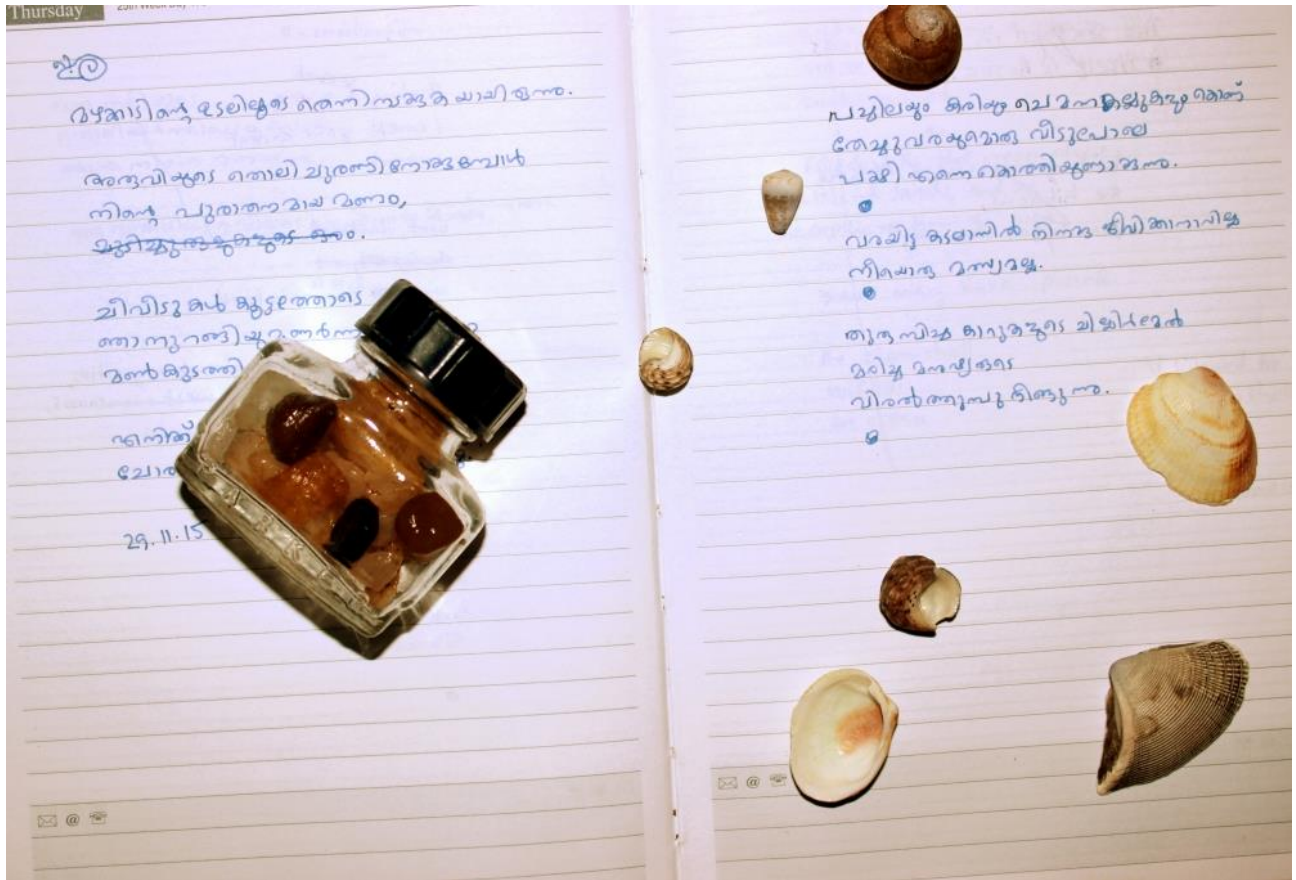 Thursday
മഴക്കാടിന്റെ ഉടലിലൂടെ തെന്നി
അരുവിയുടെ തൊലി ചുരണ്ടിനോക്കുമ്പോൾ
നിന്റെ പുരാതനമായ മണം,
ചീവീടുകൾ കൂട്ടത്തോടെ
ഞാനുറങ്ങിയുണർന്ന
മൺകുടത്തി
എനിക്ക്
ചോര
29.11.15
പച്ചിലയും കരിയും ചെമന്നകല്ലുകളും കൊണ്ട്
തേച്ചുവരയുമൊരു വീടുപോലെ
പക്ഷി എന്നെ കൊത്തിയുണക്കുന്നു.
വരയിട്ട കടലാസിൽ നിനക്കു ജീവിക്കാനാവില്ല
നീയൊരു മത്സ്യമല്ല.
തുരുമ്പിച്ച കാറുകളുടെ
മരിച്ച മനുഷ്യരുടെ
വിരൽത്തുമ്പു